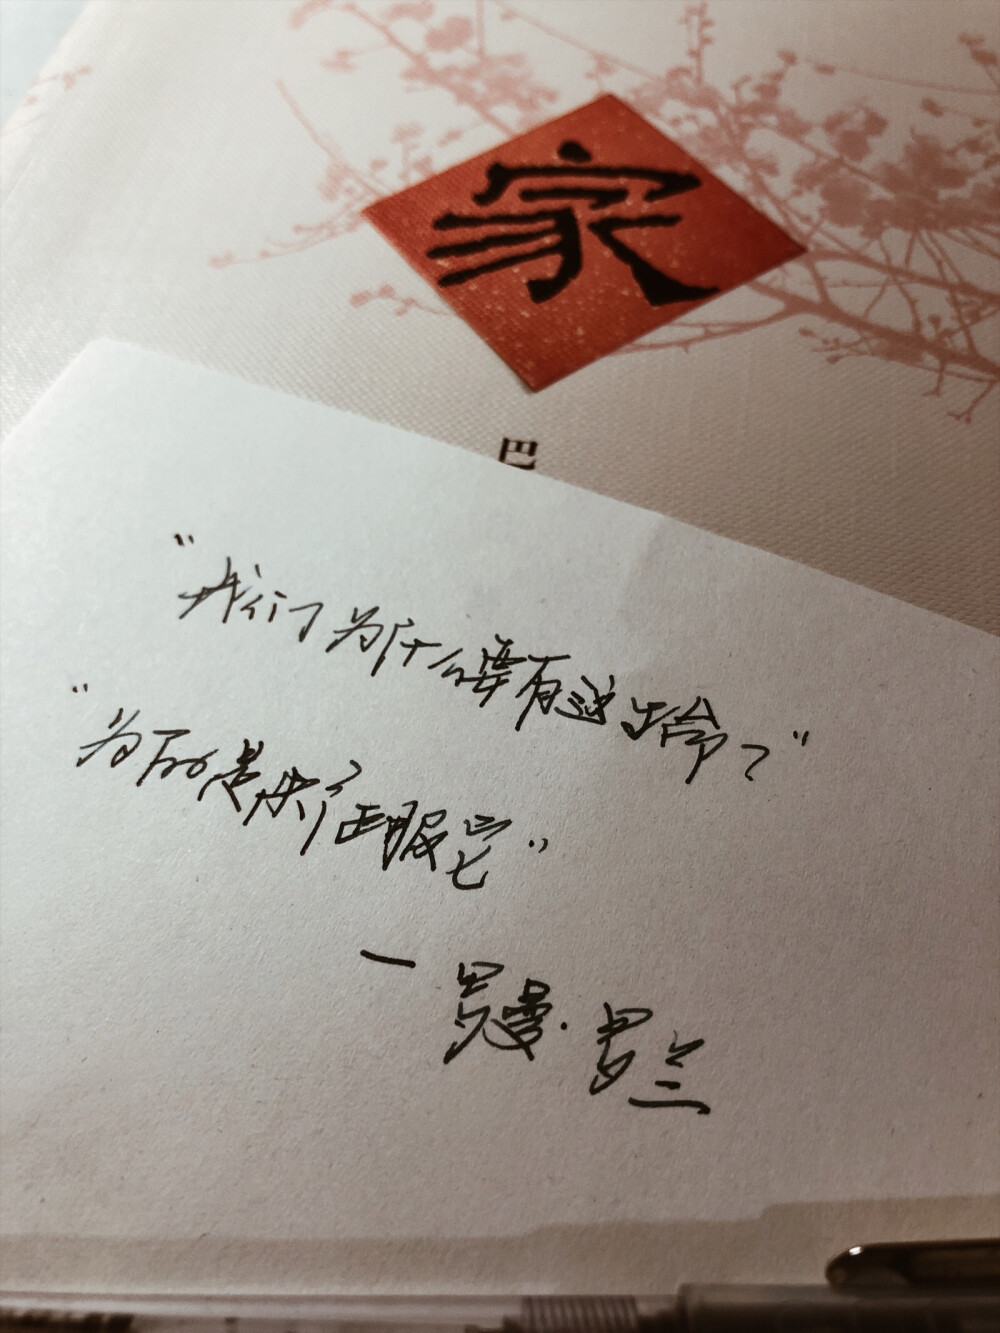 家
巴
“我们为什么要有这生命？”
“为了的是来征服它”
一罗曼·罗兰